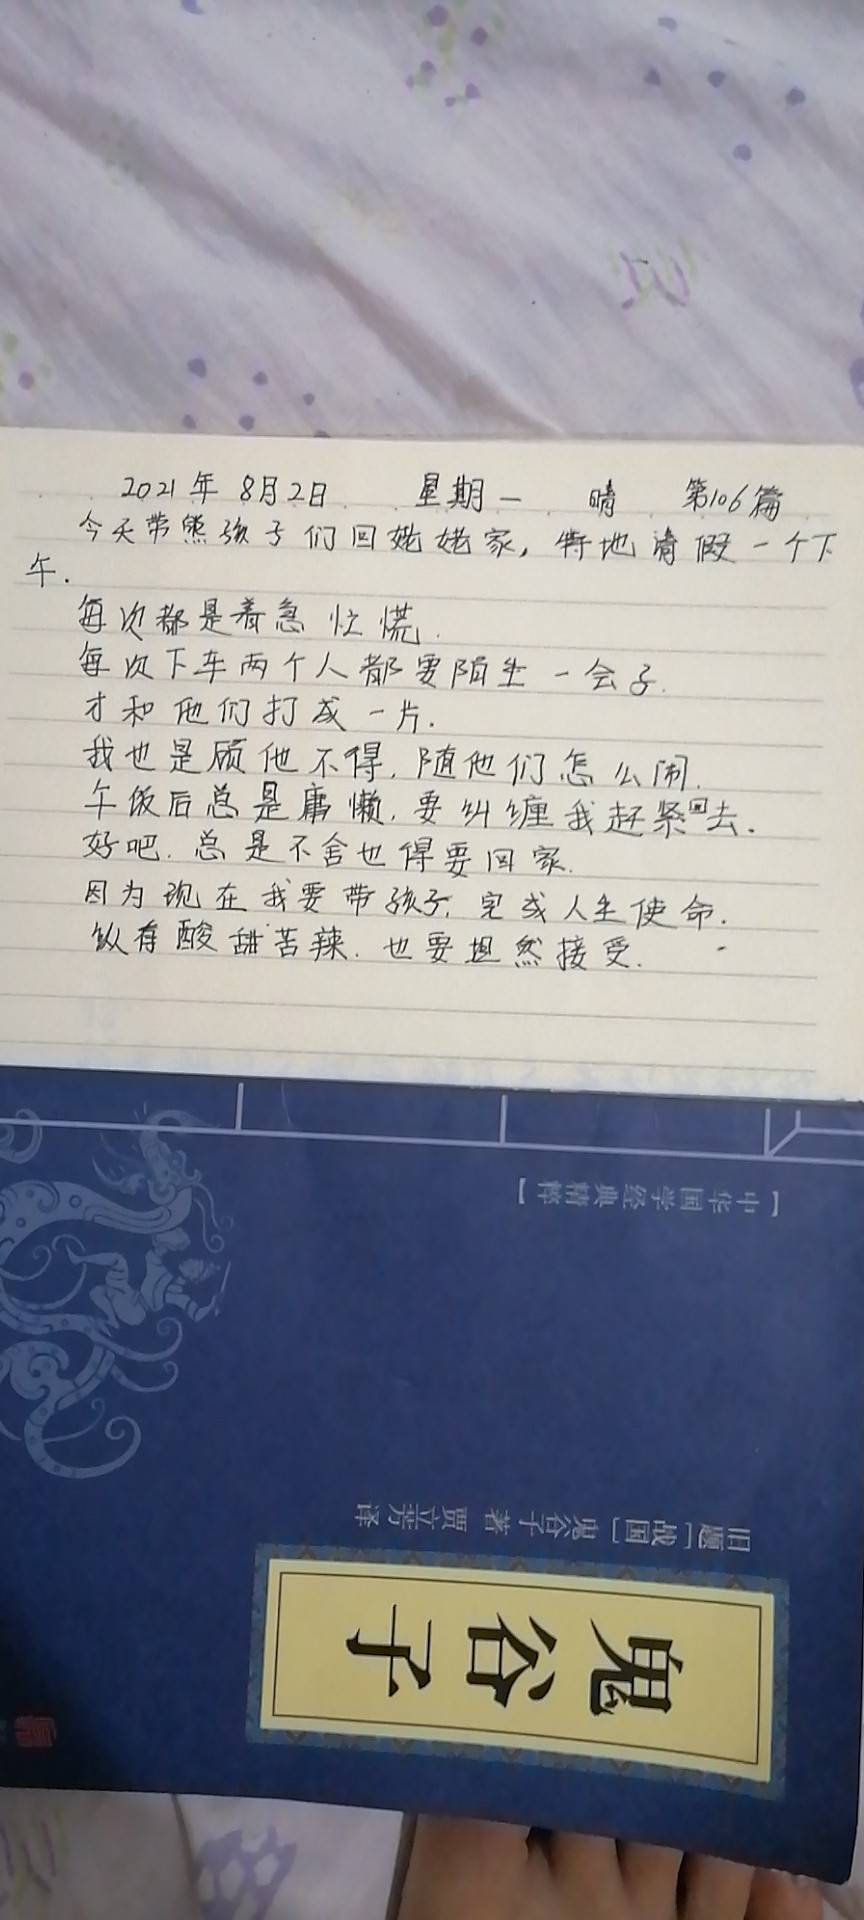 2021年 8月2日 星期一 晴 第106篇
今天带熊孩子们回姥姥家,特地请假一个下
午.
每次都是着急忙慌.
每次下车两个人都要陌生一会子.
才和他们打成一片.
我也是顾他不得.随他们怎么闹.
午饭后总是慵懒.要纠缠我赶紧回去.
好吧.总是不舍也得要回家.
因为现在我要带孩子,完成人生使命.
纵有酸甜苦辣.也要坦然接受.
【中华国学经典精粹】
旧题[战国]鬼谷子 著 贾立芳 译
鬼谷子